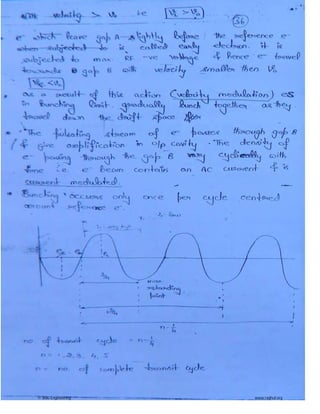 with velocity > V₀ i.e. V_L > V₀
36
e⁻ which leave gap A slightly before the reference e⁻
is called early electron. it is
subjected to max RF -ve voltage & hence e⁻ travel
towards gap B with velocity smaller then V₀
Ve < V₀
as a result of this action (velocity modulation) es
in bunching limit, gradually bunch together as they
travel down the drift space
The pulsating stream of e⁻ passes through gap B
& give amplification in o/p cavity. The density of
e⁻ passing through the gap B vary cyclically with
time i.e. e⁻ beam contains an AC current & is
current modulated.
Bunching occurs only once per cycle centred
around reference e⁻
3/4
max
point
n - 1/4
no. of transit cycle = n - 1/4
n = 1, 2, 3, 4, 5
n = no. of complete transit cycle